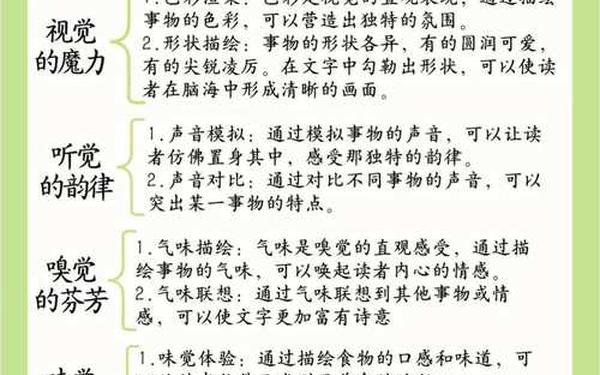 视觉
的魔力
事物的色彩，可以营造出独特的氛围。
2.形状描绘：事物的形状各异，有的圆润可爱，
有的尖锐凌厉。在文字中勾勒出形状，可以使读
者在脑海中形成清晰的画面。
听觉
的韵律
1.声音模拟：通过模拟事物的声音，可以让读
者仿佛置身其中，感受那独特的韵律。
2.声音对比：通过对比不同事物的声音，可以
突出某一事物的特点。
嗅觉
的芬芳
1.气味描绘：气味是嗅觉的直观感受，通过描
绘事物的气味，可以唤起读者内心的情感。
2.气味联想：通过气味联想到其他事物或情
感，可以使文字更加富有诗意
1.味觉体验：通过描绘食物的口感和味道，可